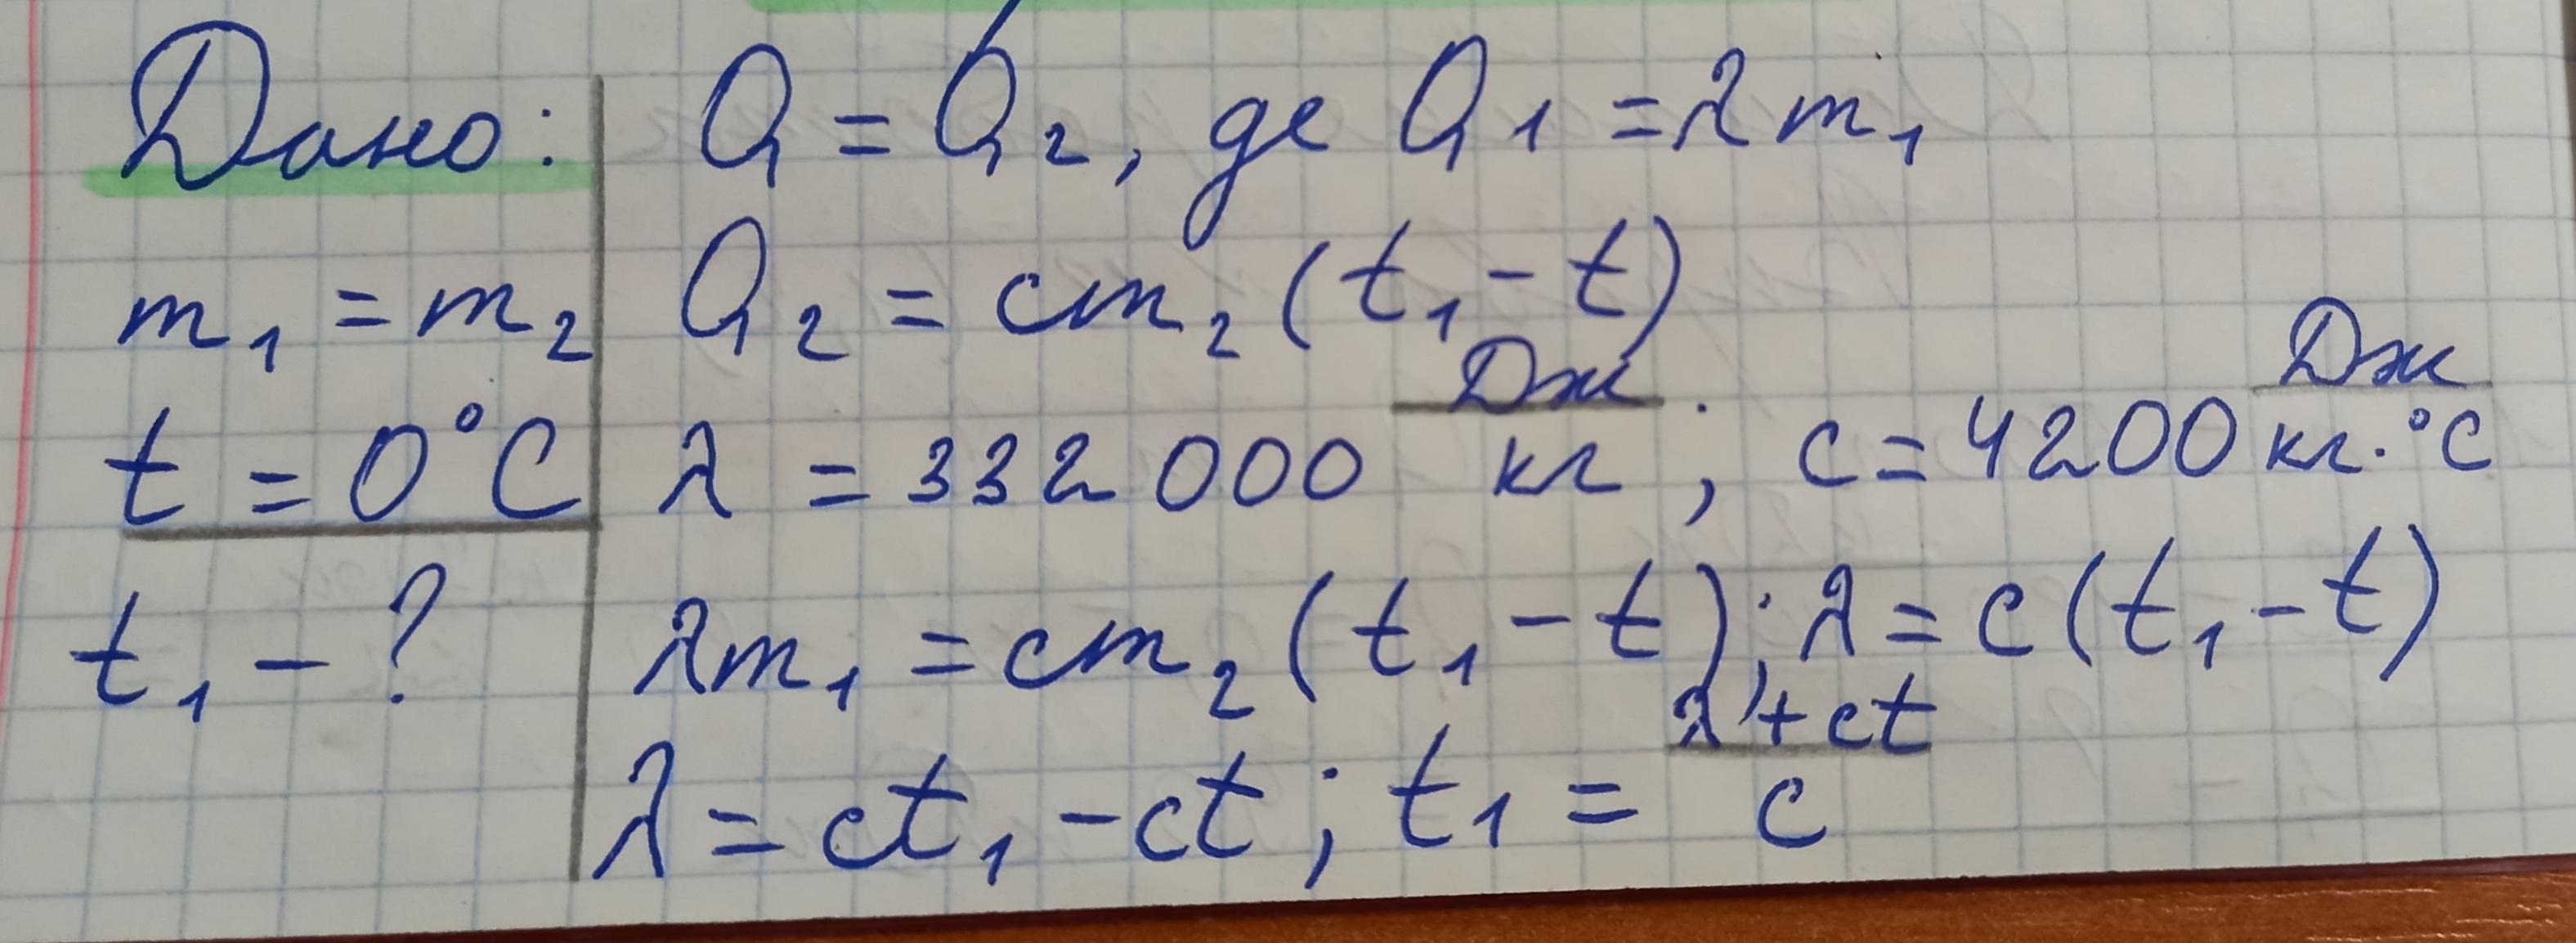 Дано:
m₁ = m₂
t = 0°C
t₁ - ?
Q = Q₂, де Q₁ = λm₁
Q₂ = cm₂(t₁ - t)
λ = 332 000 Дж/кг; c = 4200 Дж/кг·°C
λm₁ = cm₂(t₁ - t); λ = c(t₁ - t)
λ = ct₁ - ct; t₁ = λ + ct/c